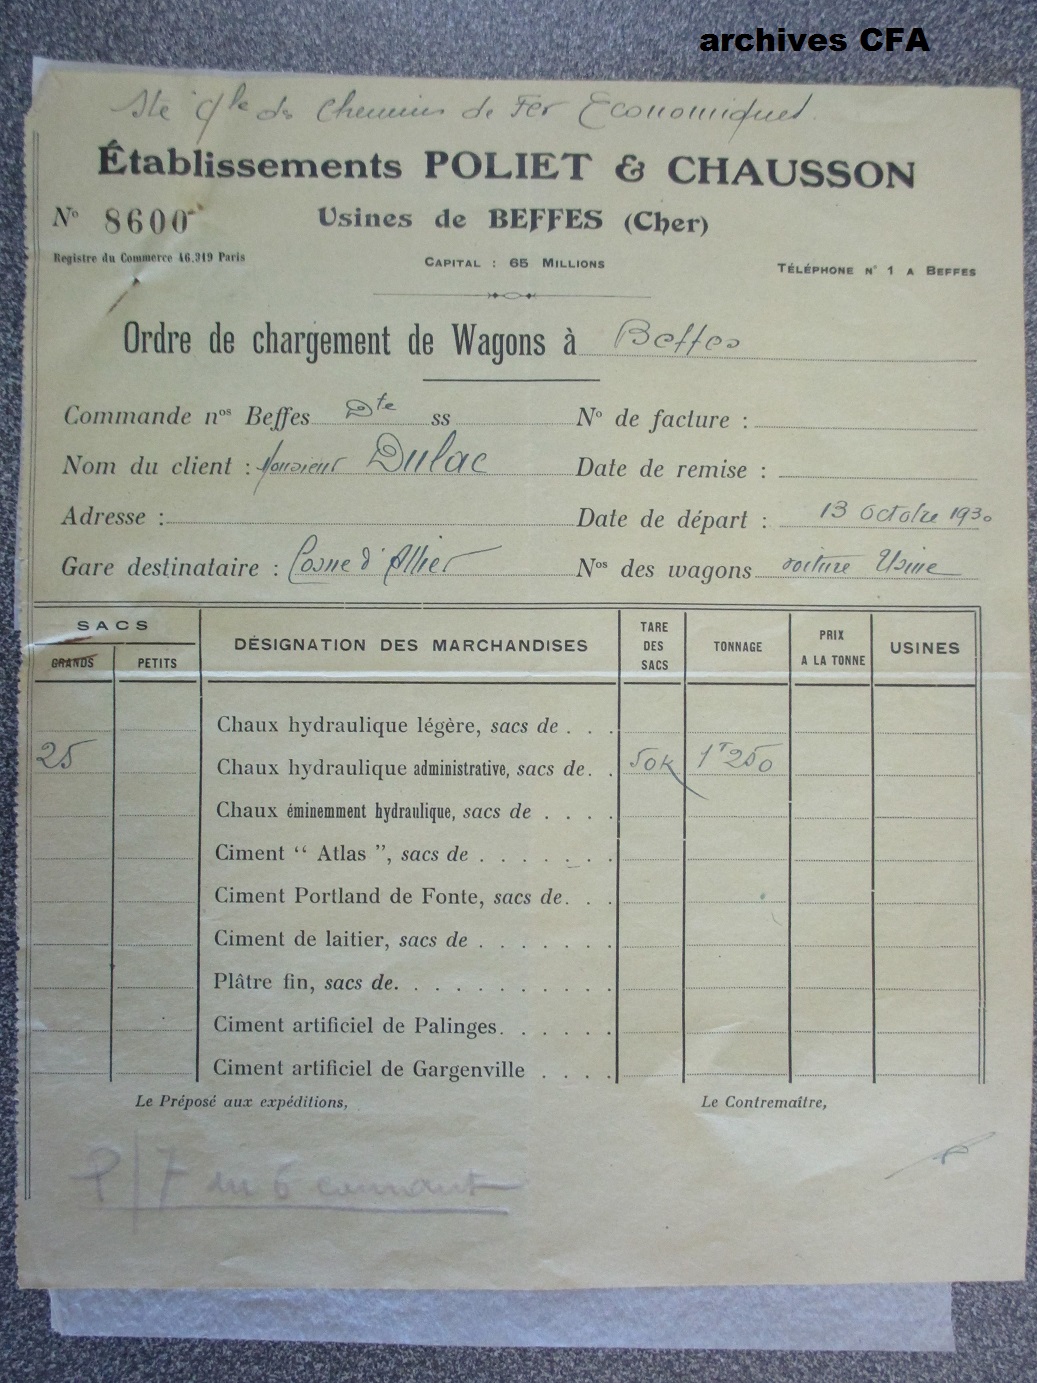 archives CFA
Sté Gle des Chemins de Fer Economiques
Établissements POLIET & CHAUSSON
N° 8600 Usines de BEFFES (Cher)
Registre du Commerce 46.319 Paris CAPITAL : 65 MILLIONS TÉLÉPHONE N° 1 A BEFFES
Ordre de chargement de Wagons à Beffes
Commande nos Beffes Dte ss N° de facture :
Nom du client : Monsieur Dulac Date de remise :
Adresse : Date de départ : 13 octobre 1930
Gare destinataire : Cosne d'Allier Nos des wagons voiture Usine
SACS DÉSIGNATION DES MARCHANDISES TARE DES SACS TONNAGE PRIX A LA TONNE USINES
GRANDS PETITS
Chaux hydraulique légère, sacs de . . .
25 Chaux hydraulique administrative, sacs de. . . 50K 1T250
Chaux éminemment hydraulique, sacs de . . . .
Ciment “ Atlas ”, sacs de . . . . . . .
Ciment Portland de Fonte, sacs de. . .
Ciment de laitier, sacs de . . . . . . .
Plâtre fin, sacs de. . . . . . . . . . .
Ciment artificiel de Palinges. . . . . .
Ciment artificiel de Gargenville . . . .
Le Préposé aux expéditions, Le Contremaître,
P/7 du 6 courant